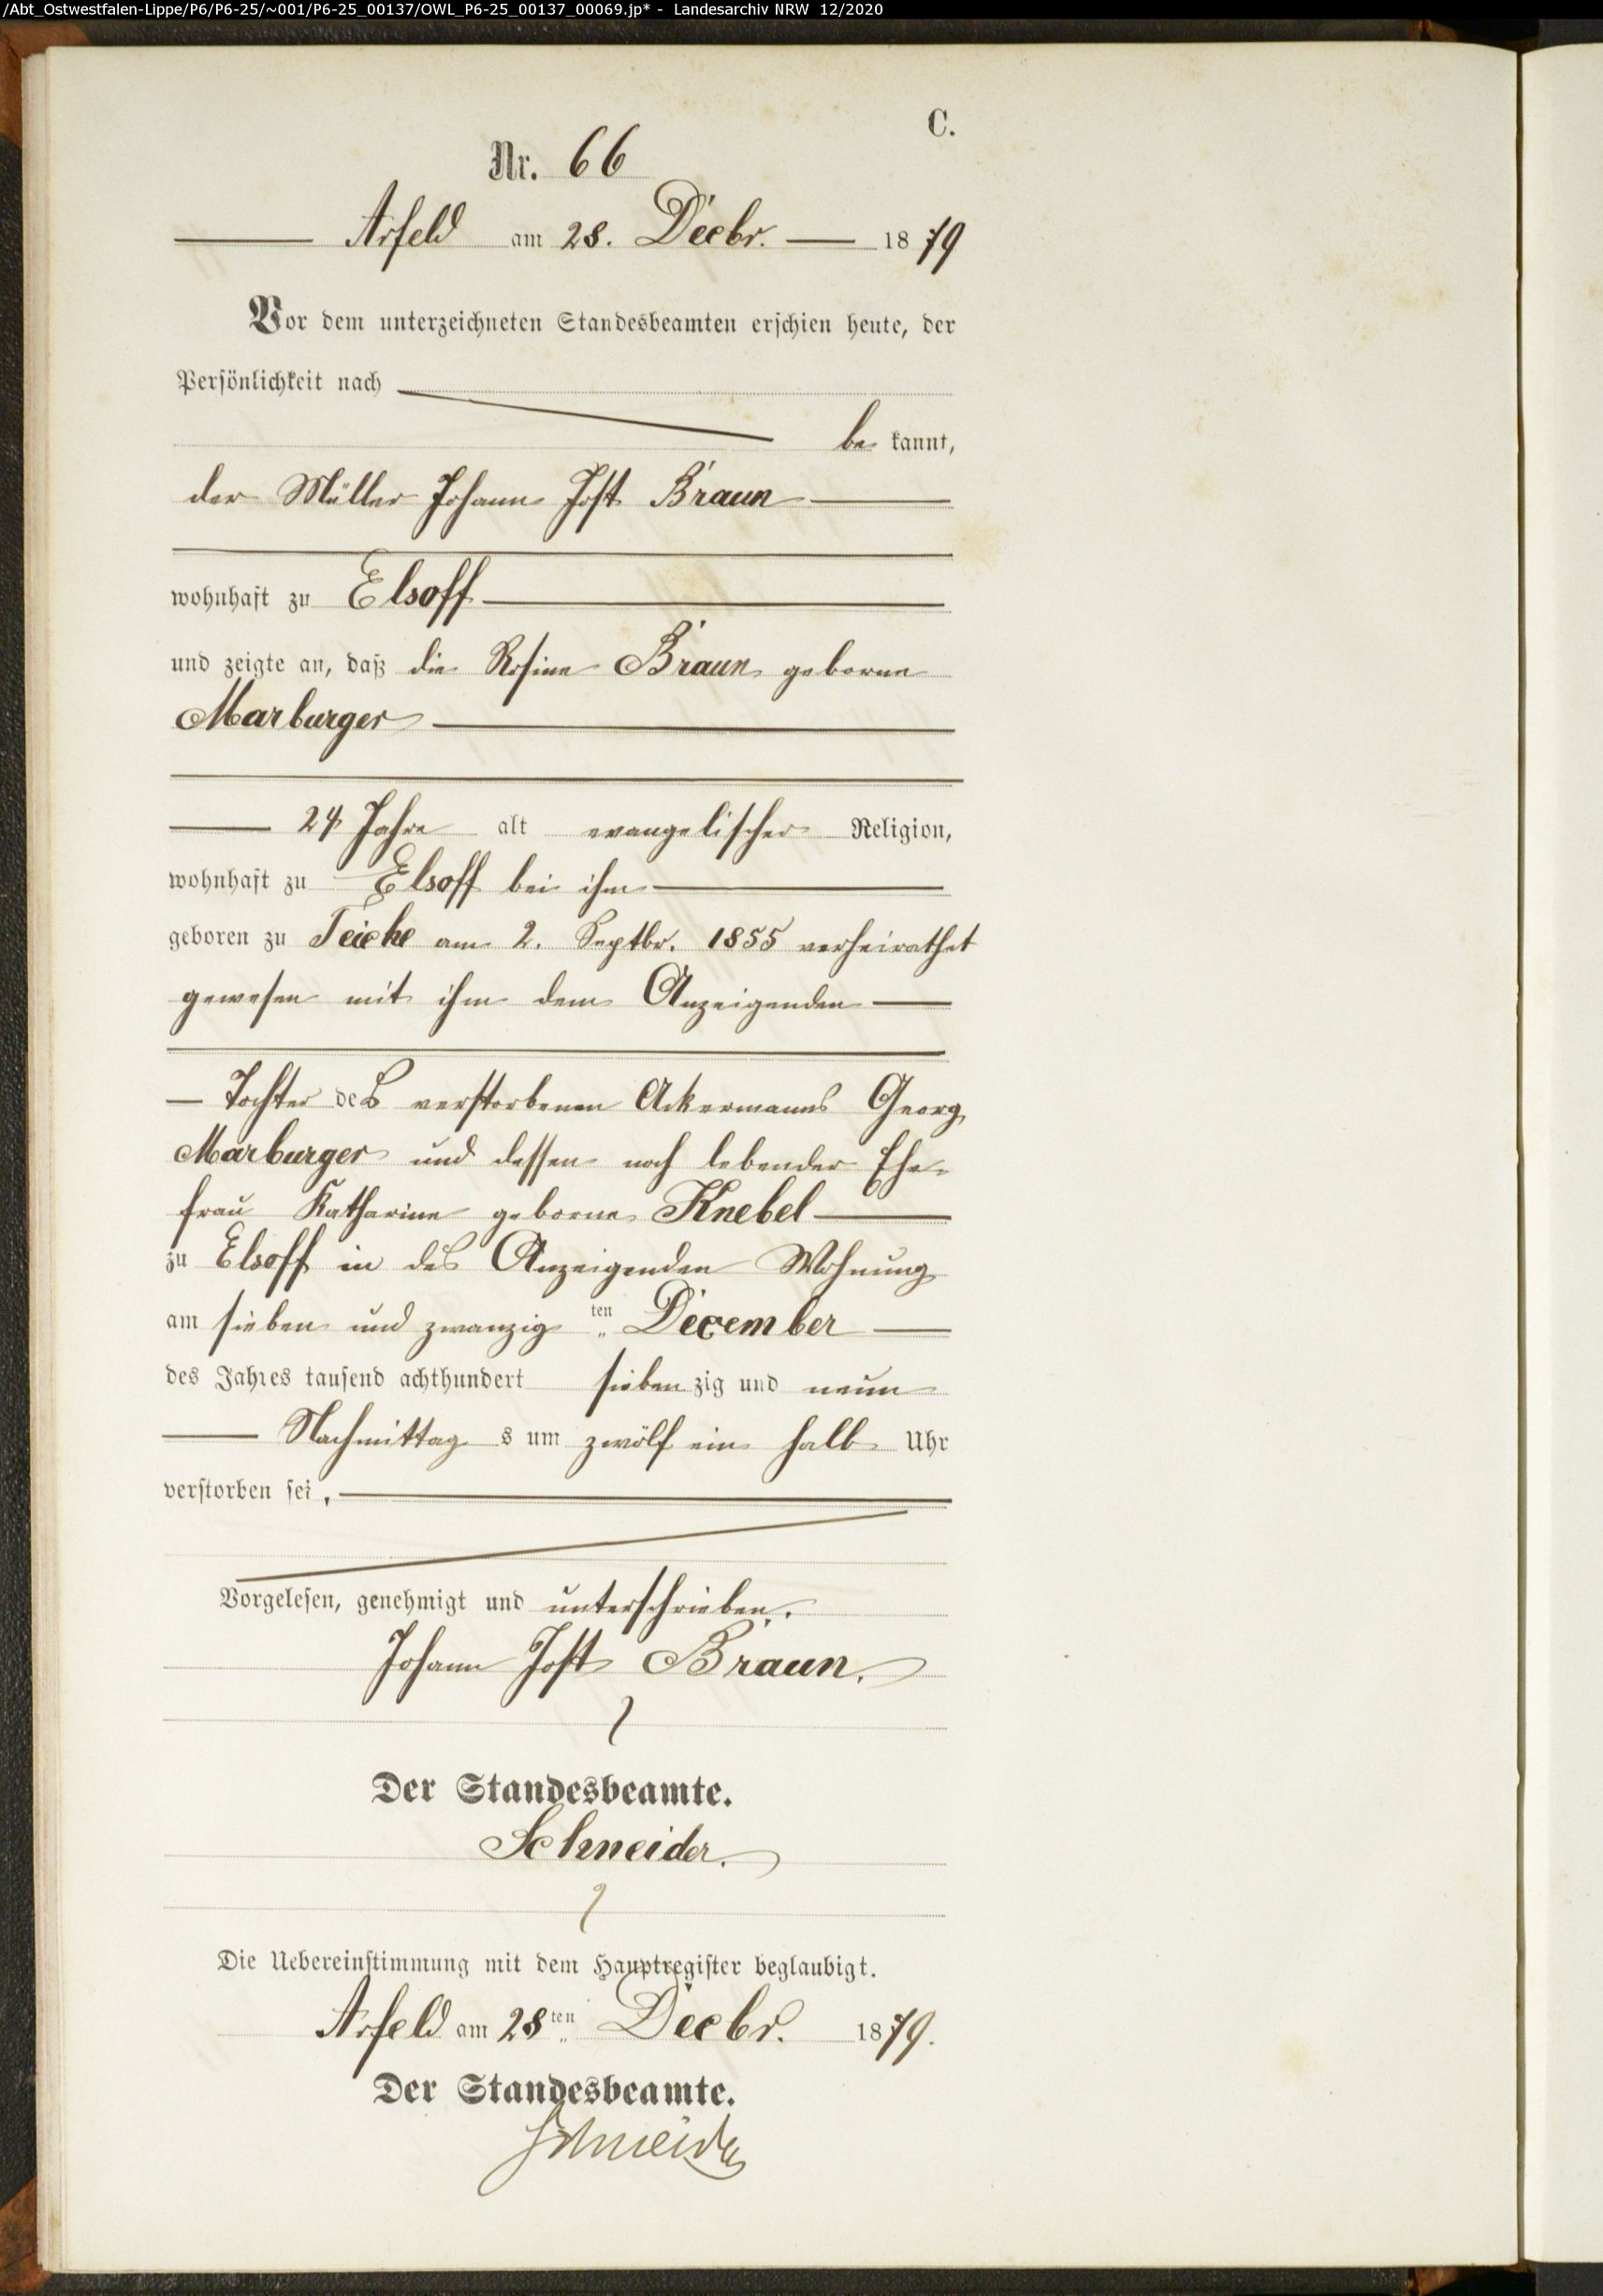 /Abt_Ostwestfalen-Lippe/P6/P6-25/~001/P6-25_00137/OWL_P6-25_00137_00069.jp* - Landesarchiv NRW 12/2020
C.
Nr. 66
Arfeld am 28. Decbr. 1879
Vor dem unterzeichneten Standesbeamten erschien heute, der
Persönlichkeit nach
be kannt,
der Müller Johann Jost Braun
wohnhaft zu Elsoff
und zeigte an, daß die Rosine Braun geborne
Marburger
24 Jahre alt evangelischer Religion,
wohnhaft zu Elsoff bei ihm
geboren zu Teiche am 2. Septbr. 1855 verheirathet
gewesen mit ihm dem Anzeigenden
Tochter des verstorbenen Ackermanns Georg
Marburger und dessen noch lebender Ehe-
frau Katharine geborne Knebel
zu Elsoff in des Anzeigenden Wohnung
am sieben und zwanzig ten December
des Jahres tausend achthundert siebenzig und neun
Nachmittag s um zwölf ein halb Uhr
verstorben sei,
Vorgelesen, genehmigt und unterschrieben.
Johann Jost Braun.
Der Standesbeamte.
Schneider.
Die Uebereinstimmung mit dem Hauptregister beglaubigt.
Arfeld am 28ten Decbr. 1879.
Der Standesbeamte.
Schneider